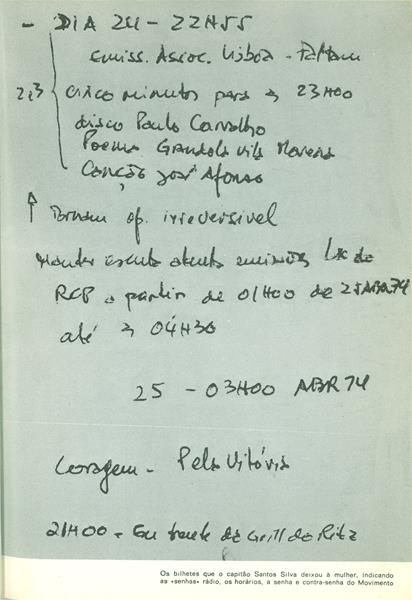 - DIA 24 - 22H55
emiss. Assoc. Lisboa -
cinco minutos para as 23H00
disco Paulo Carvalho
Poema Grandola Vila Morena
Canção José Afonso
↑ Tornam op. irreversivel
Manter escuta atenta emissões
RCP a partir de 01H00 de 25 ABR 74
até às 04H30
25 - 03H00 ABR 74
Coragem - Pela Vitória
21H00 - Em frente do Grill do Ritz
Os bilhetes que o capitão Santos Silva deixou à mulher, indicando
as «senhas» rádio, os horários, a senha e contra-senha do Movimento